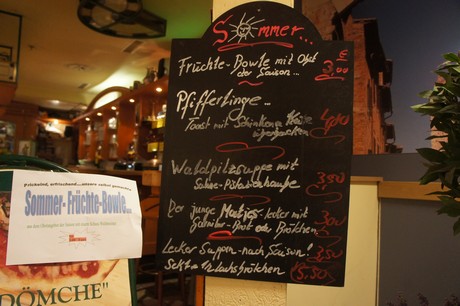 Sommer...
€
Früchte-Bowle mit Obst
der Saison... 3,00
Pfifferlinge...
Toast mit Schinken & Käse
überbacken
Waldpilzsuppe mit
Sahne-Pistazienhaube 3,90
Der junge Matjes-lecker mit
Garnitur-Brot oder Brötchen
Lecker Suppen-nach Saison! 3,50
Sekt & Lachsbrötchen 15,50
Prickelnd, erfrischend...unsere
Sommer-Früchte-Bowle..
DÖMCHE"